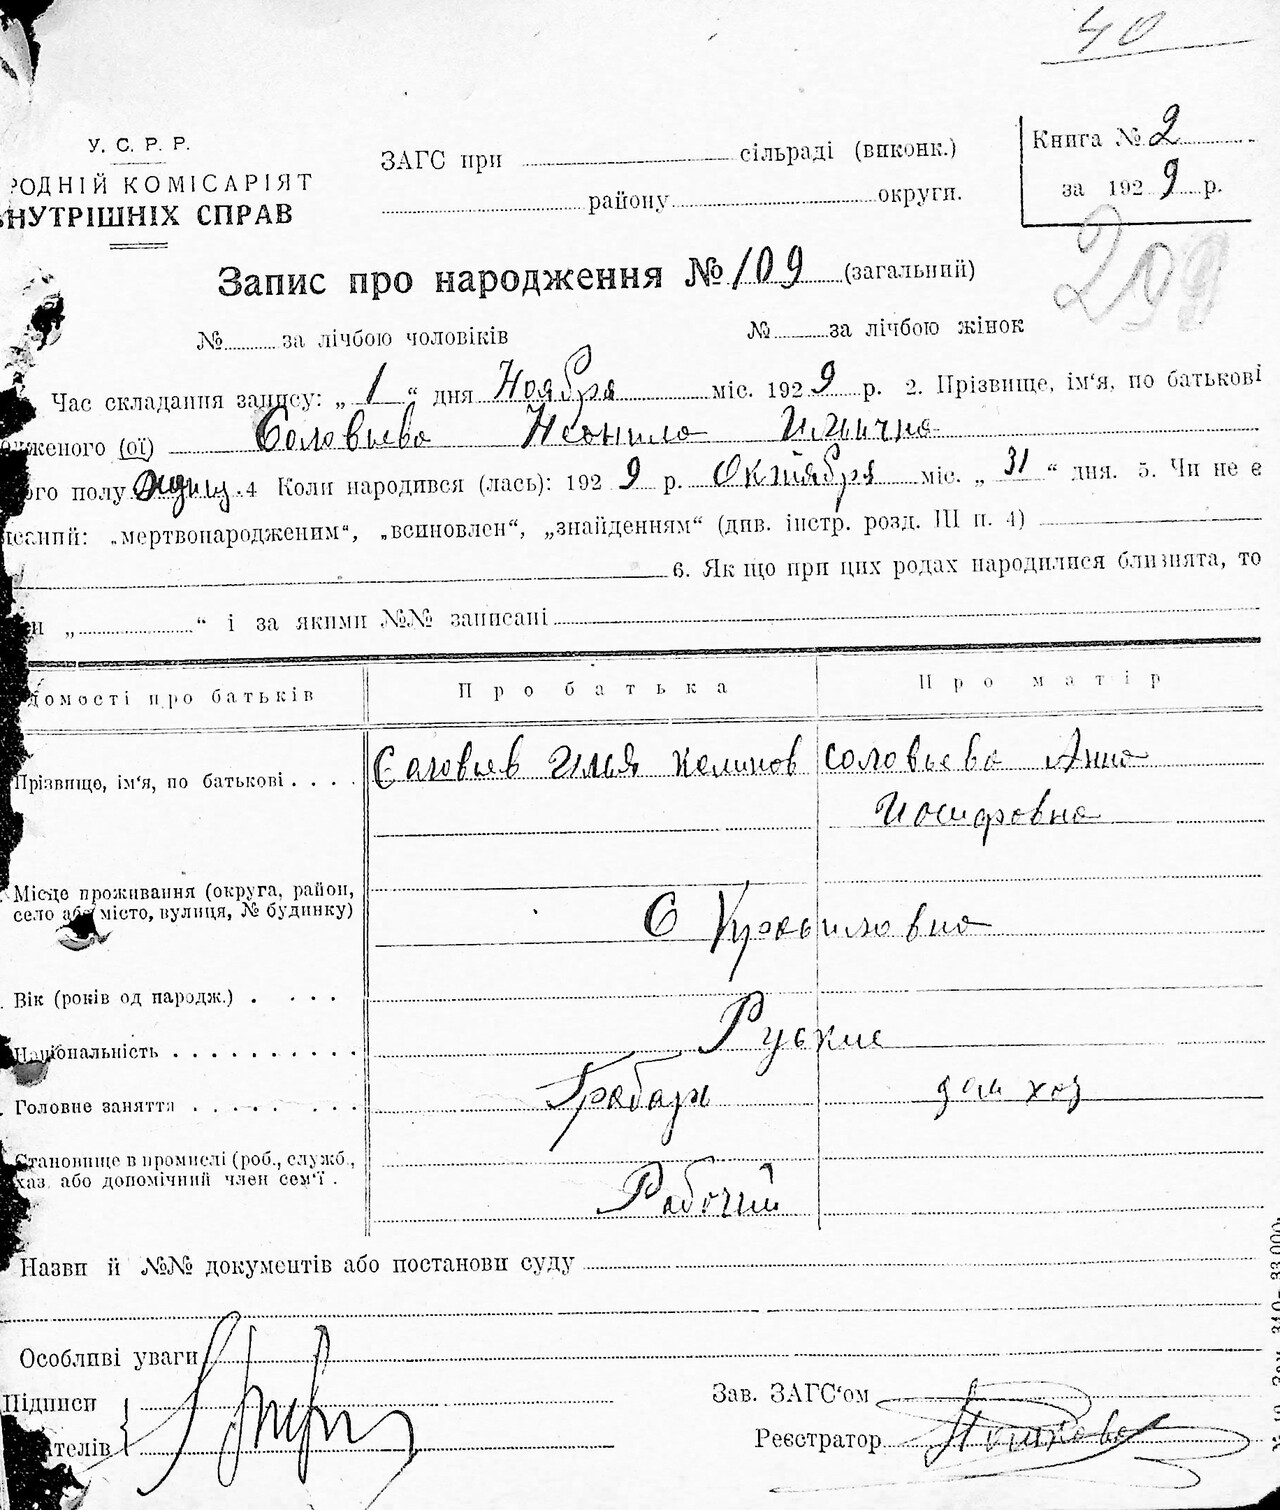 40
У. С. Р. Р.
РОДНІЙ КОМІСАРІЯТ
НУТРІШНІХ СПРАВ
ЗАГС при сільраді (виконк.)
району округи.
Книга № 2
за 1929 р.
299
Запис про народження № 109 (загальний)
№ за лічбою чоловіків № за лічбою жінок
Час складання запису: „ 1 “ дня Ноября міс. 1929 р. 2. Прізвище, ім‘я, по батькові
дженого (ої) Соловьева Неонила Ильична
ого полу жінщ. 4 Коли народився (лась): 1929 р. Октября міс. „ 31 “ дня. 5. Чи не є
исаний: „мертвонародженим“, „всиновлен“, „знайденням“ (див. інстр. розд. III п. 4)
6. Як що при цих родах народилися близнята, то
и „ “ і за якими №№ записані
домості про батьків Про батька Про матір
Прізвище, ім‘я, по батькові . . . . Соловьев Илья Калинов Соловьева Анна
Иосифовна
Місце проживання (округа, район,
село або місто, вулиця, № будинку) С
Вік (років од народж.) . . . .
Національність . . . . . . . . . . Руские
Головне заняття . . . . . . . . Грабарь дом хоз
Становище в промислі (роб., служб.,
хаз. або допомічний член сем‘ї . Рабочий
Назви й №№ документів або постанови суду
Особливі уваги
Підписи
ителів
Зав. ЗАГС‘ом
Реєстратор